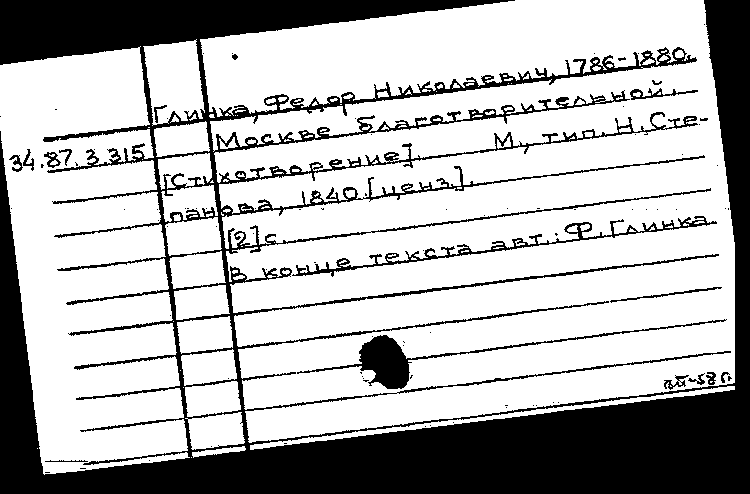 Глинка, Федор Николаевич, 1786-1880.
34.87.3.315 Москве благотворительной.
[Стихотворение]. М., тип. Н. Сте-
панова, 1840 [ценз.].
[2] с.
В конце текста авт.: Ф. Глинка